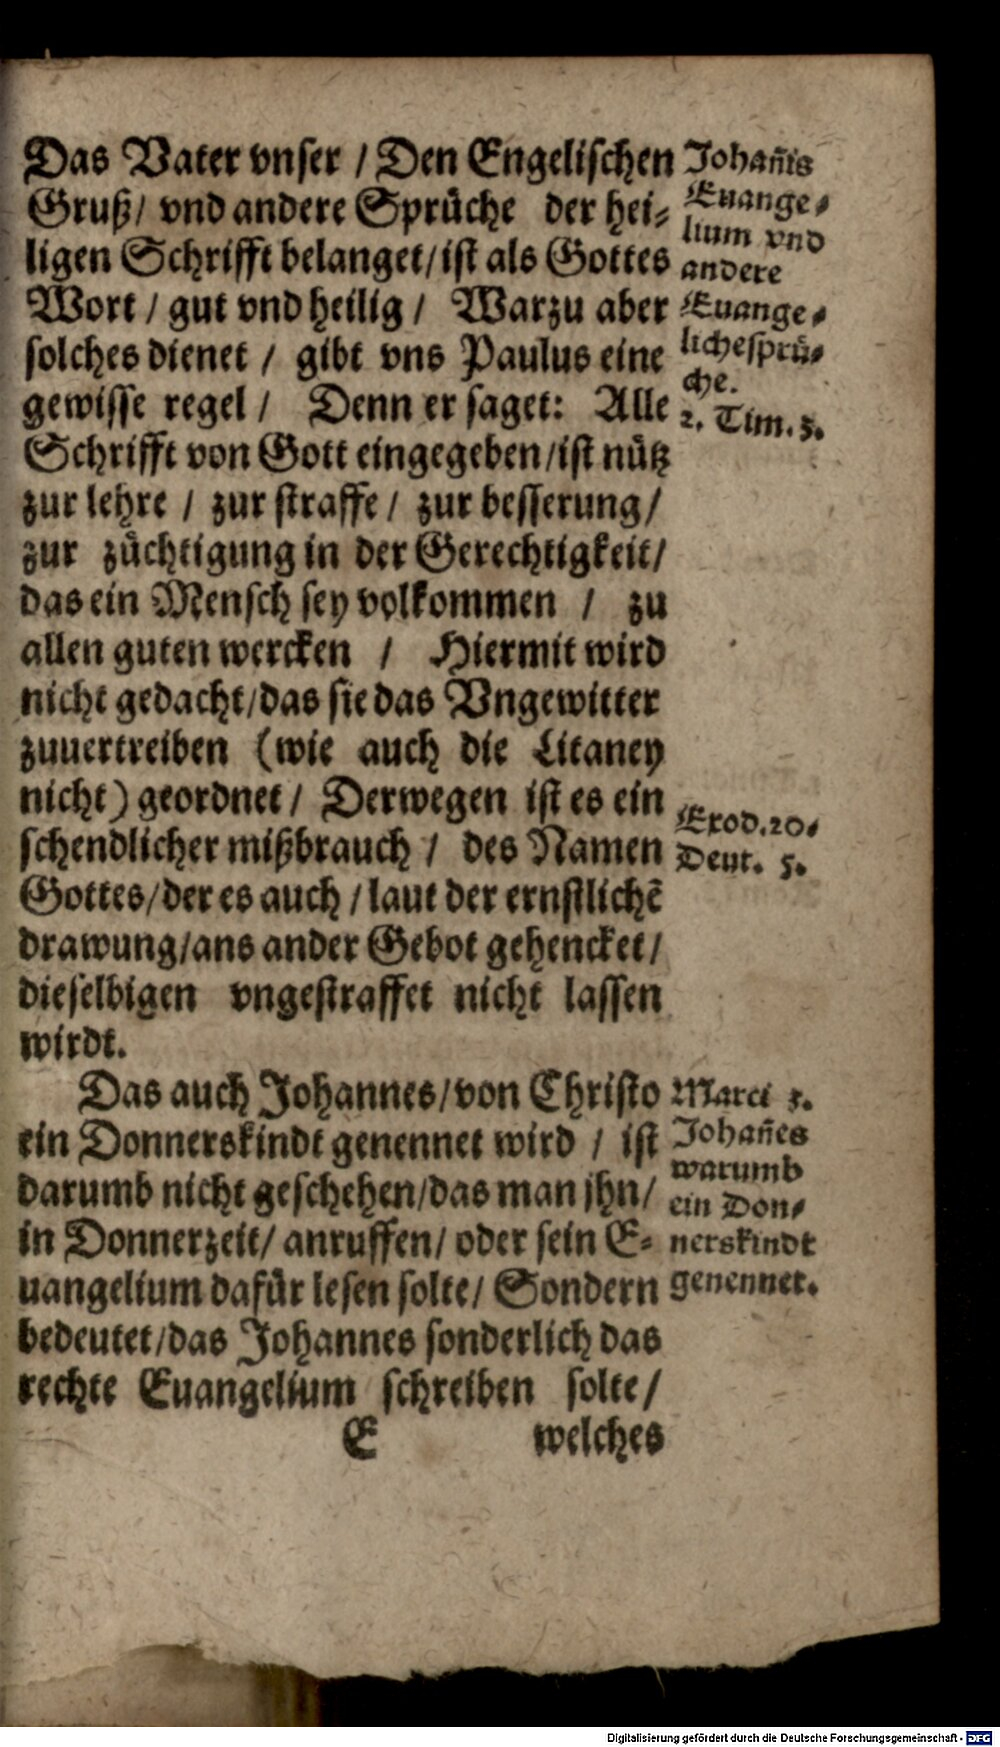 Das Vater vnser / Den Engelischen
Gruß / vnd andere Sprüche der hei-
ligen Schrifft belanget / ist als Gottes
Wort / gut vnd heilig / Warzu aber
solches dienet / gibt vns Paulus eine
gewisse regel / Denn er saget: Alle
Schrifft von Gott eingegeben / ist nütz
zur lehre / zur straffe / zur besserung /
zur züchtigung in der Gerechtigkeit /
das ein Mensch sey volkommen / zu
allen guten wercken / Hiermit wird
nicht gedacht / das sie das Vngewitter
zuuertreiben (wie auch die Litaney
nicht) geordnet / Derwegen ist es ein
schendlicher mißbrauch / des Namen
Gottes / der es auch / laut der ernstlichẽ
drawung / ans ander Gebot gehencket /
dieselbigen vngestraffet nicht lassen
wirdt.
Das auch Johannes / von Christo
ein Donnerskindt genennet wird / ist
darumb nicht geschehen / das man jhn /
in Donnerzeit / anruffen / oder sein E-
uangelium dafür lesen solte / Sondern
bedeutet / das Johannes sonderlich das
rechte Euangelium schreiben solte /
E welches
Johañis
Euange-
lium vnd
andere
Euange-
lichesprü-
che.
2. Tim. 3.
Exod. 20.
Deut. 5.
Marci 3.
Johañes
warumb
ein Don-
nerskindt
genennet.
Digitalisierung gefördert durch die Deutsche Forschungsgemeinschaft - DFG